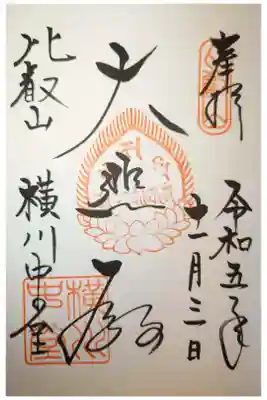 奉拝
令和五年
十一月三日
大悲殿
比叡山
横川中堂